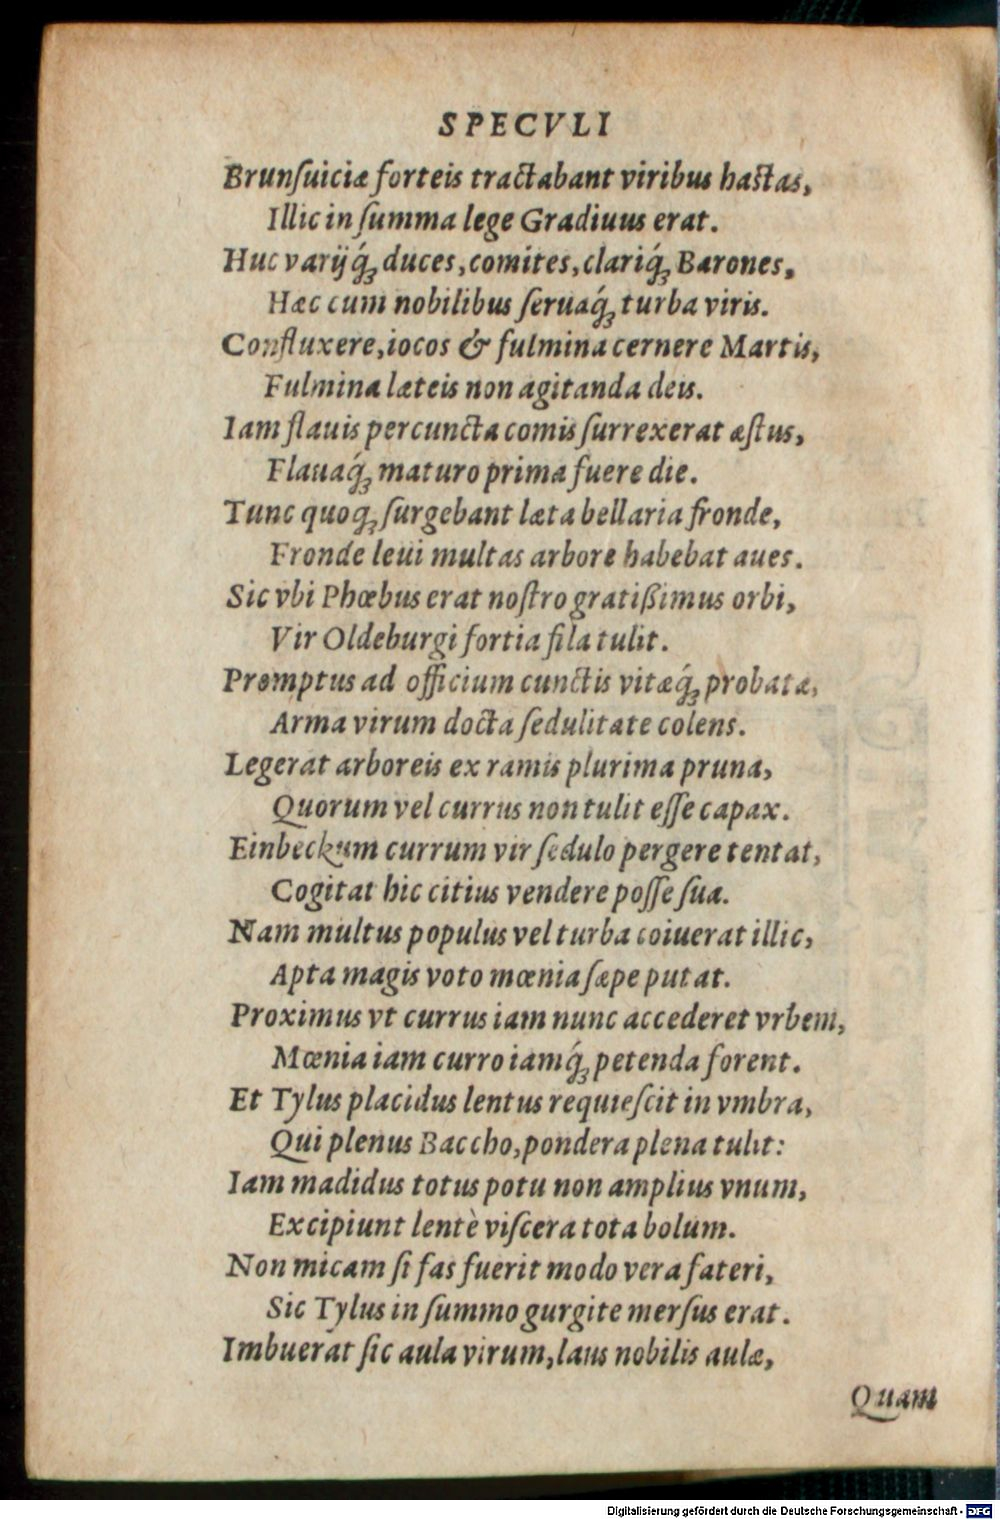 SPECVLI
Brunſuiciæ forteis tractabant viribus hastas,
Illic in ſumma lege Gradiuus erat.
Huc varijq́ꝫ duces, comites, clariq́ꝫ Barones,
Hæc cum nobilibus ſeruaq́ꝫ turba viris.
Confluxere, iocos & fulmina cernere Martis,
Fulmina læteis non agitanda deis.
Iam flauis percuncta comis ſurrexerat æſtus,
Flauaq́ꝫ maturo prima fuere die.
Tunc quoqꝫ ſurgebant læta bellaria fronde,
Fronde leui multas arbore habebat aues.
Sic vbi Phœbus erat noſtro gratißimus orbi,
Vir Oldeburgi fortia fila tulit.
Promptus ad officium cunctis vitæq́ꝫ probatæ,
Arma virum docta ſedulitate colens.
Legerat arboreis ex ramis plurima pruna,
Quorum vel currus non tulit eſſe capax.
Einbeckum currum vir ſedulo pergere tentat,
Cogitat hic citius vendere poſſe ſua.
Nam multus populus vel turba coiuerat illic,
Apta magis voto mœnia ſæpe putat.
Proximus vt currus iam nunc accederet vrbem,
Mœnia iam curro iamq́ꝫ petenda forent.
Et Tylus placidus lentus requieſcit in vmbra,
Qui plenus Baccho, pondera plena tulit:
Iam madidus totus potu non amplius vnum,
Excipiunt lentè viſcera tota bolum.
Non micam ſi fas fuerit modo vera fateri,
Sic Tylus in ſummo gurgite merſus erat.
Imbuerat ſic aula virum, laus nobilis aulæ,
Quam
Digitalisierung gefördert durch die Deutsche Forschungsgemeinschaft - DFG